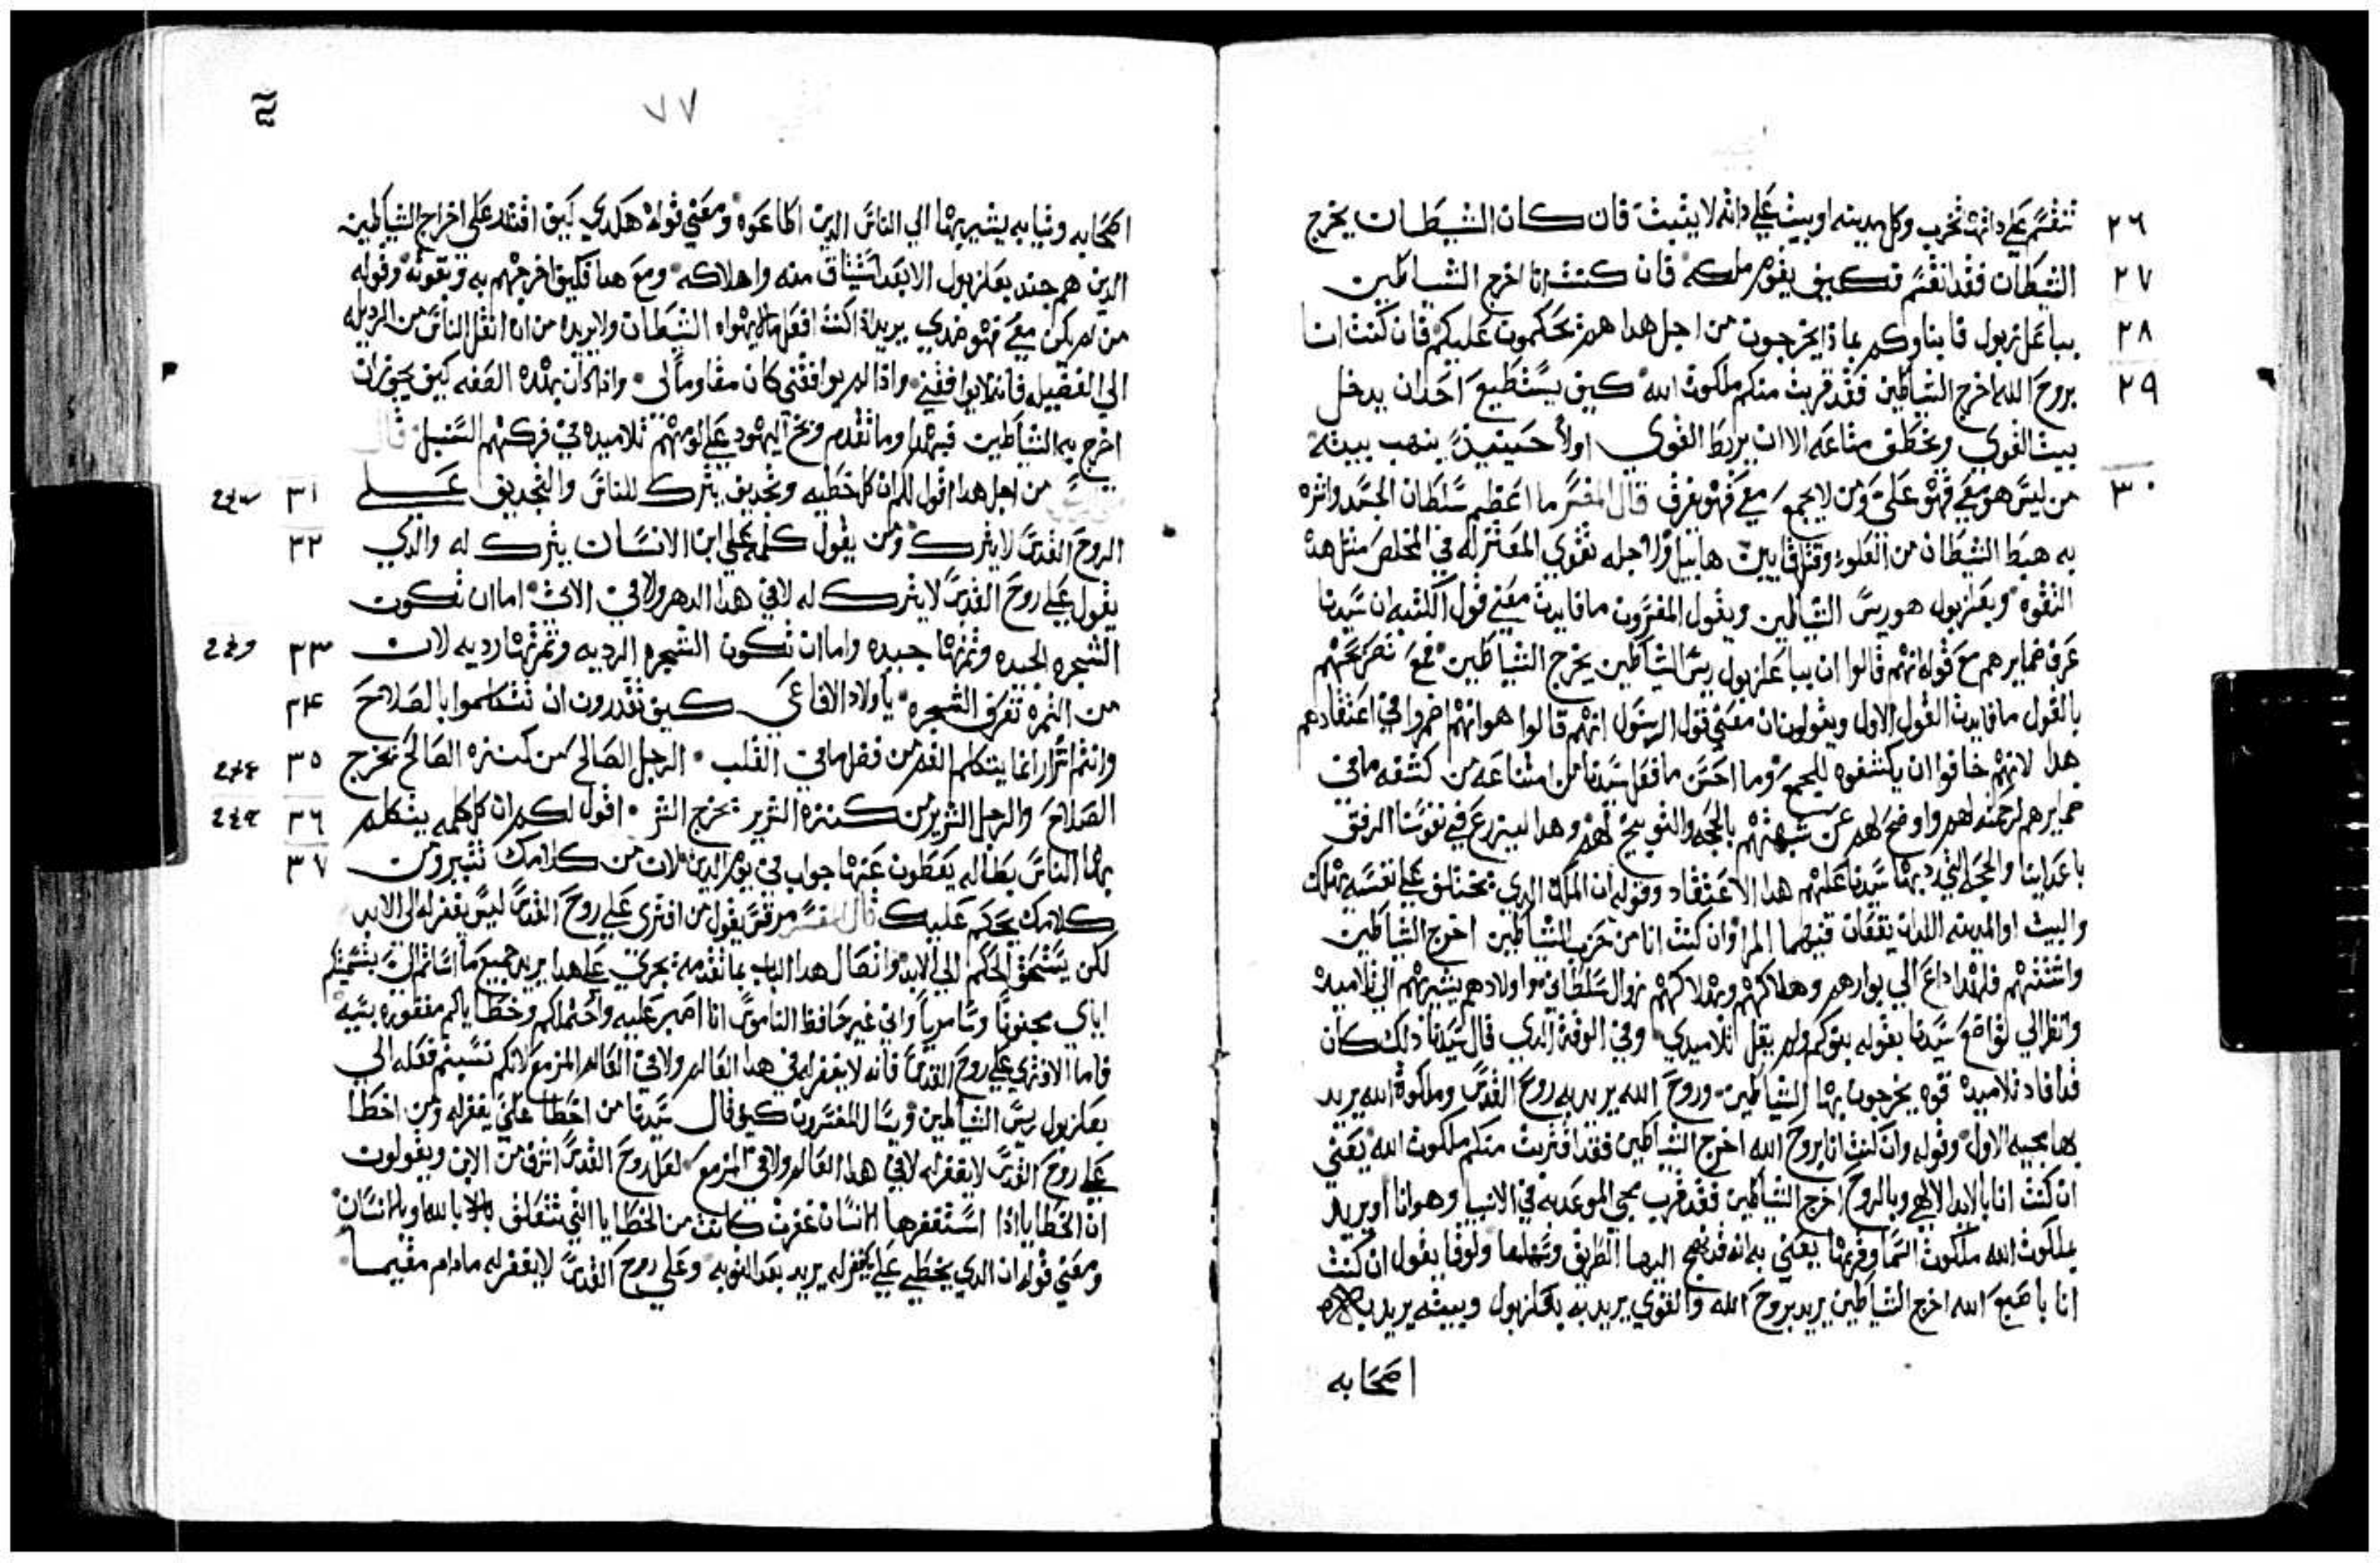 تنقسم على داتها تخرب وكل مدينه او بيت على داته لا يثبت فان كان الشيطان يخرج ٢٦
الشيطان فقد انقسم فكيف يقوم ملكه فان كنت انا اخرج الشياطين ٢٧
بباعل زبول فابناوكم بماذا يخرجون من اجل هدا هم يحكمون عليكم فان كنت انا ٢٨
بروح الله اخرج الشياطين فقد قربت منكم ملكوت الله كيف يستطيع احد ان يدخل ٢٩
بيت القوي ويخطف متاعه الا ان يربط القوي اولا حينيذ ينهب بيته
من ليس هو معي فهو علي ومن لا يجمع معي فهو يفرق قال المفسر ما اعظم سلطان الحسد واشره ٣٠
به هبط الشيطان من العلو وقتل قايين هابيل ولاجله تقوي المعتزله في المخلص مثل هده
التقوه وبعلزبول هو ريس الشياطين ويقول المفسرون ما فايدة معني قول الكتبه ان سيدنا
عرف ضمايرهم مع قوله انهم قالوا ان بباعلزبول ريس الشياطين يخرج الشياطين فمع تصريحهم
بالقول ما فايدة القول الاول ويقولون ان معني قول الرسول انهم قالوا هو انهم اضمروا في اعتقادهم
هدا لانهم خافوا ان يكشفوه للجمع وما احسن ما فعل سيدنا من امتناعه من كشفه ما في
ضمايرهم لرحمته لهم واوضح لهم عن شبهتهم بالحجه والتوبيخ لهم وهدا ليزرع في نفوسنا الرفق
باعداينا والحجه التي رد بها سيدنا عليهم هدا الاعتقاد وقوله ان الملك الدي يختلف على نفسه يهلك
والبيت او المدينه اللدان يقعان فيهما المرا وان كنت انا من حزب الشياطين اخرج الشياطين
واشتتهم فلهدا داع الي بوارهم وهلاكهم وبهلاكهم زوال سلطاني واولادهم يشير بهم الي تلاميده
وانظر الي تواضع سيدنا بقوله بنوكم ولم يقل تلاميدي وفي الوقت الدي قال سيدنا دلك كان
قد افاد تلاميده قوه يخرجون بها الشياطين وروح الله يريد به روح القدس وملكوة الله يريد
بها مجيه الاول وقوله وان كنت انا بروح الله اخرج الشياطين فقد اقتربت منكم ملكوت الله يعني
ان كنت انا بالايد الالهي وبالروح اخرج الشياطين فقد قرب مجي الموعد به في الانبيا وهو انا او يريد
بملكوت الله ملكوت السما وقربها يعني به انه قد نهج اليها الطريق وسهلها ولوقا يقول ان كنت
انا باصبع الله اخرج الشياطين يريد بروح الله والقوي يريد به بعلزبول وبيته يريد به
اصحابه
٧٧
اصحابه وثيابه يشير بها الي الناس الدين اطاعوه ومعني قوله هكدي كيف اقتدر على اخراج الشياطين
الدين هم جند بعلزبول الا بعد استيثاق منه واهلاكه ومع هدا فكيف اخرجهم به وبقوته وقوله
من لم يكن معي فهو ضدي يريد اذا كنت افعل ما لا يهواه الشيطان ولا يريده من ان انقل الناس من الرديله
الي الفضيله فانه لا يوافقني واذا لم يوافقني كان مقاوما لي واذا كان بهده الصفه كيف يجوز ان
اخرج به الشياطين فبهدا وما تقدم وبخ اليهود على لومهم تلاميده في فركهم السنبل قال
من اجل هدا اقول لكم ان كل خطيه وتجديف يترك للناس والتجديف على ٣١
الروح القدس لا يترك ومن يقول كلمة على ابن الانسان يترك له والدي ٣٢
يقول على روح القدس لا يترك له لا في هدا الدهر ولا في الات اما ان تكون
الشجره الجيده وثمرتها جيده واما ان تكون الشجره الرديه وثمرتها رديه لان ٣٣
من الثمرة تعرف الشجره يا اولاد الافاعي كيف تقدرون ان تتكلموا بالصلاح ٣٤
وانتم اشرار انما يتكلم الفم من فضل ما في القلب الرجل الصالح من كنزه الصالح يخرج ٣٥
الصلاح والرجل الشرير من كنزه الشرير يخرج الشر اقول لكم ان كل كلمه يتكلم ٣٦
بها الناس بطاله يعطون عنها جواب في يوم الدين لان من كلامك تتبرر ومن ٣٧
كلامك يحكم عليك قال المفسر مرقس يقول من افترى على روح القدس ليس يغفر له الى الابد
لكن يستحق الحكم الي الابد واتصال هدا الباب بما تقدمه يجري على هدا يريد جميع ما اساتم الي بتسميتكم
اياي مجنونا وسامريا واني غير حافظ الناموس انا اصبر عليه واحتملكم وخطاياكم مغفوره بنيه
فاما الافتري على روح القدس فانه لا يغفر له في هدا العالم ولا في العالم المزمع لانكم نسبتم فعله الي
بعلزبول ريس الشياطين وسال المفسرون كيف قال سيدنا من اخطا علي يغفر له ومن اخطا
على روح القدس لا يغفر له لا في هدا العالم ولا في المزمع لعل روح القدس اشرف من الابن ويقولون
ان الخطايا اذا استغفرها الانسان غفرت كانت من الخطايا التي تتعلق بالله او بالانسان
ومعني قوله ان الدي يخطي علي يغفر له يريد بعد التوبه وعلى روح القدس لا يغفر له ما دام مقيما